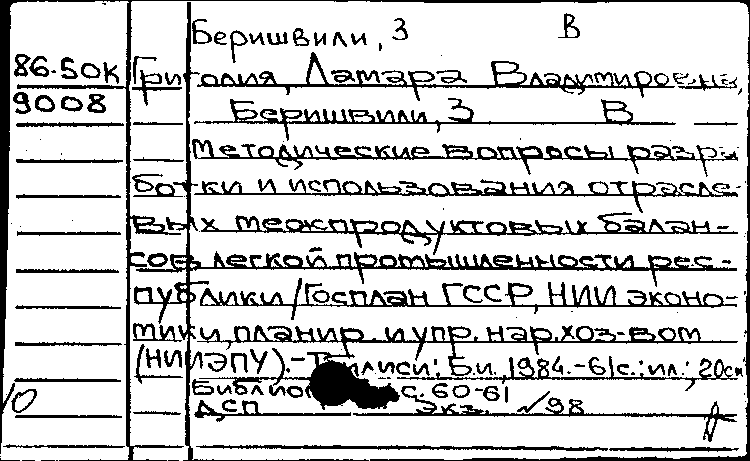 Беришвили, З В
86.50К Григолия, Ламара Владимировна,
9008 Беришвили, З В
Методические вопросы разра
ботки и использования отрасле-
вых межпродуктовых балан-
сов легкой промышленности рес-
публики/Госплан ГССР, НИИ эконо-
мики, планир. и упр. нар. хоз-вом
(НИИЭПУ).-Тбилиси: Б.и., 1984.-61с.:ил.; 20см
с. 60-61
ДСП Экз. №98